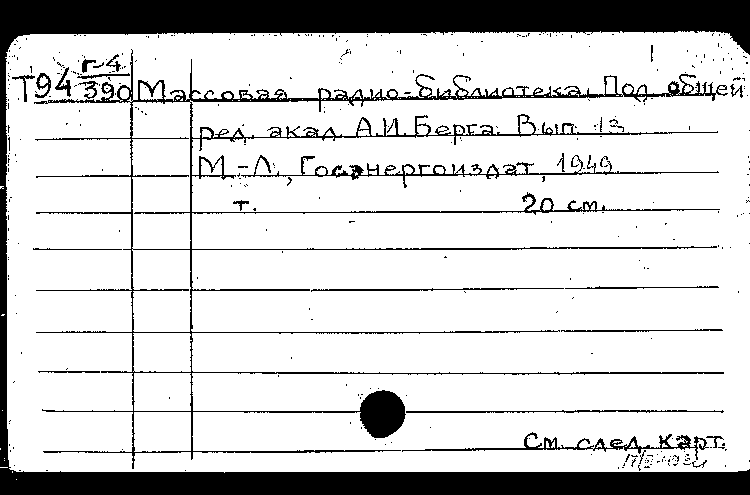 Т94 г-4/390 Массовая радио-библиотека. Под общей
ред. акад. А.И. Берга. Вып. 13
М.-Л., Госэнергоиздат, 1949
т. 20 см.
См. след. карт.